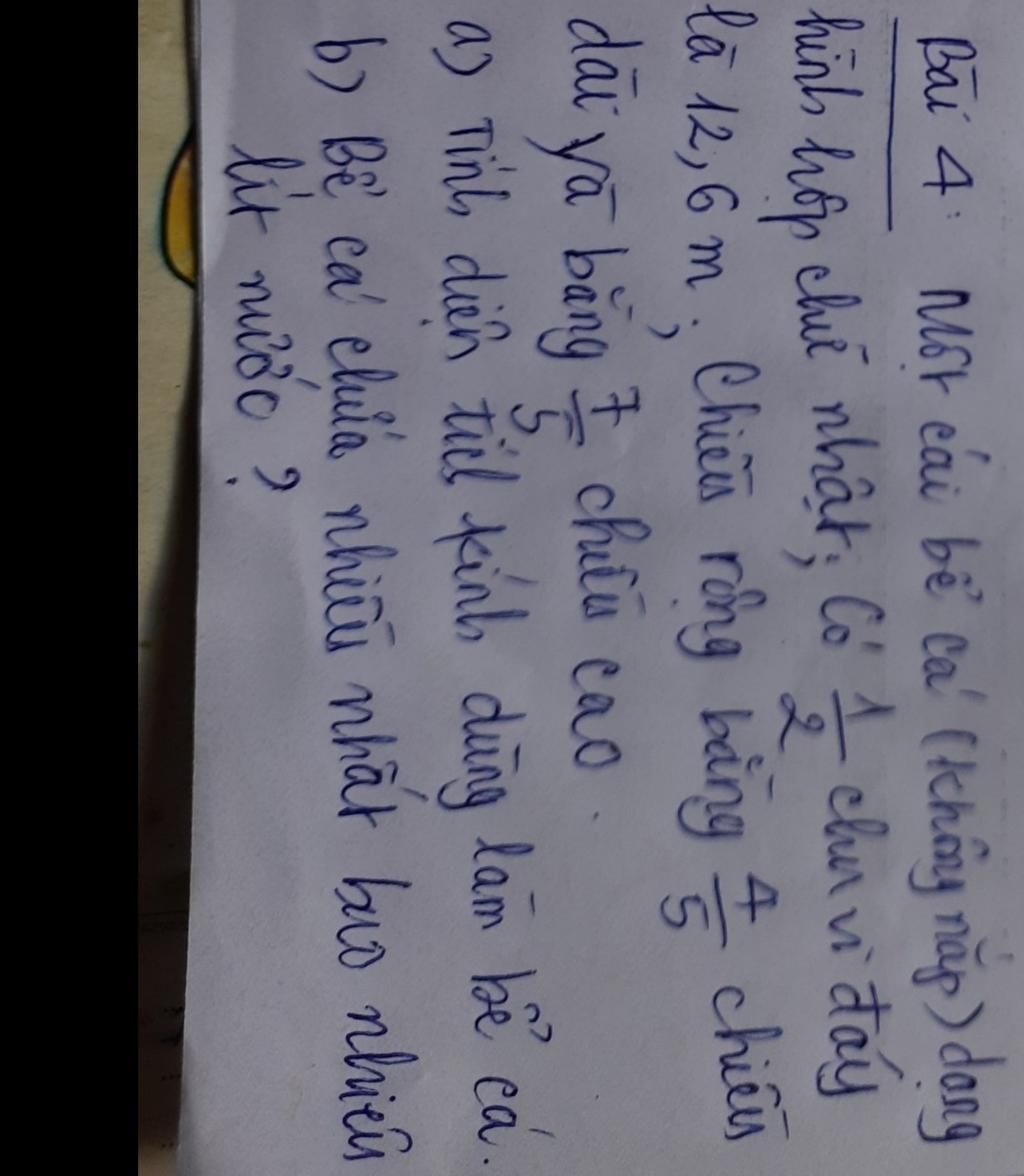 Bài 4: Một cái bể cá (không nắp) dạng
hình hộp chữ nhật; Có 1/2 chu vi đáy
là 12,6 m; Chiều rộng bằng 4/5 chiều
dài và bằng 7/5 chiều cao.
a) Tính diện tích kính dùng làm bể cá.
b) Bể cá chứa nhiều nhất bao nhiêu
lít nước?